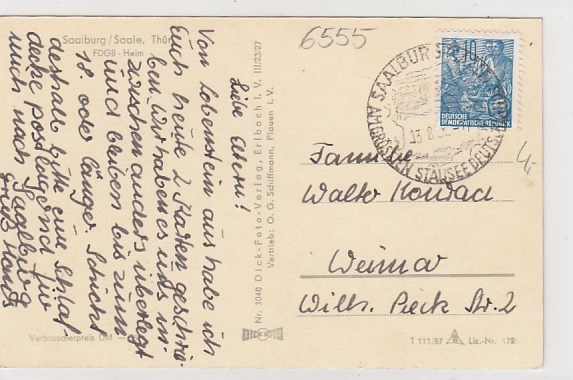 Saalburg/Saale, Thür.
FDGB - Heim
Liebe Eltern!
Von Lobenstein aus habe ich
Euch heute 2 Karten geschrie-
ben. Wir haben es uns in-
zwischen anders überlegt
und bleiben bis zum
18. oder länger. Schickt
deshalb bitte eine Schlaf-
decke postlagernd für
mich nach Saalburg
Verbraucherpreis DM
Nr. 3040 Dick-Foto-Verlag, Erlbach i. V. III/23/27
Vertrieb: O. G. Schiffmann, Plauen i. V.
DICK
6555
SAALBURG (SAALE)
AM GRÖSSTEN STAUSEE DEUTSCHLANDS
13.8.
10
DEUTSCHE
DEMOKRATISCHE REPUBLIK
Familie
Walter Konrad
Weimar
Wilh. Pieck Str. 2
T 111/57 Liz.-Nr. 172